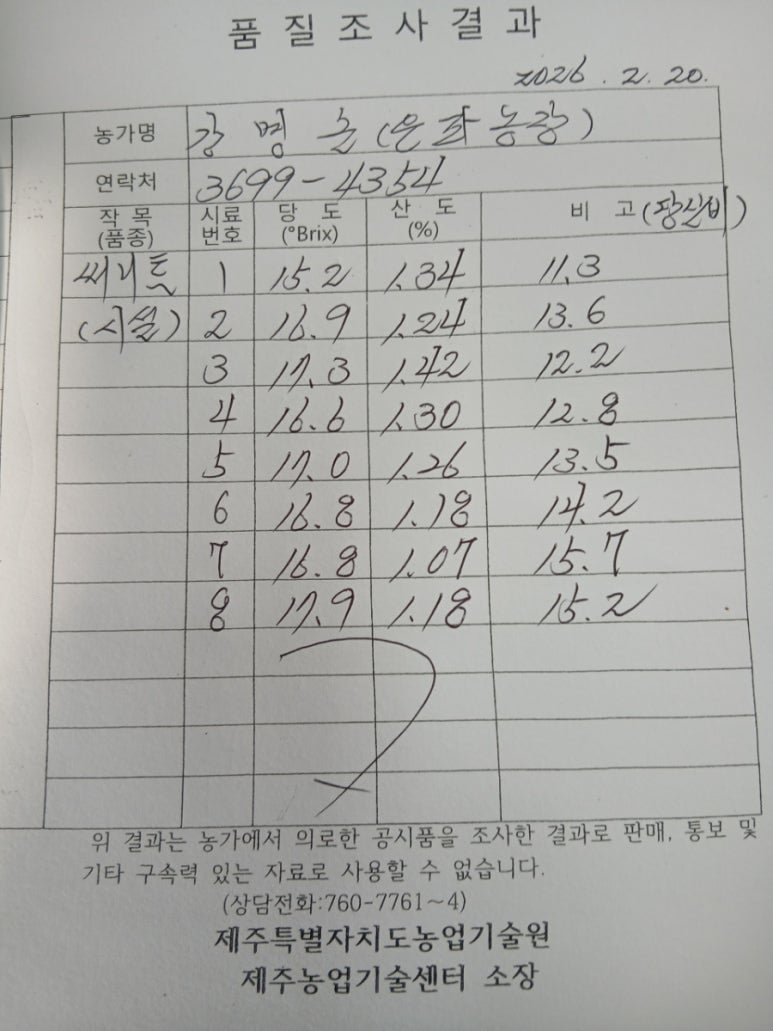 품질조사결과
2026. 2. 20.
농가명 강명순(은파농장)
연락처 3699-4354
작목(품종) 시료번호 당도(°Brix) 산도(%) 비고(당산비)
써니트 1 15.2 1.34 11.3
(시설) 2 16.9 1.24 13.6
3 17.3 1.42 12.2
4 16.6 1.30 12.8
5 17.0 1.26 13.5
6 16.8 1.18 14.2
7 16.8 1.07 15.7
8 17.9 1.18 15.2
위 결과는 농가에서 의로한 공시품을 조사한 결과로 판매, 통보 및
기타 구속력 있는 자료로 사용할 수 없습니다.
(상담전화:760-7761~4)
제주특별자치도농업기술원
제주농업기술센터 소장